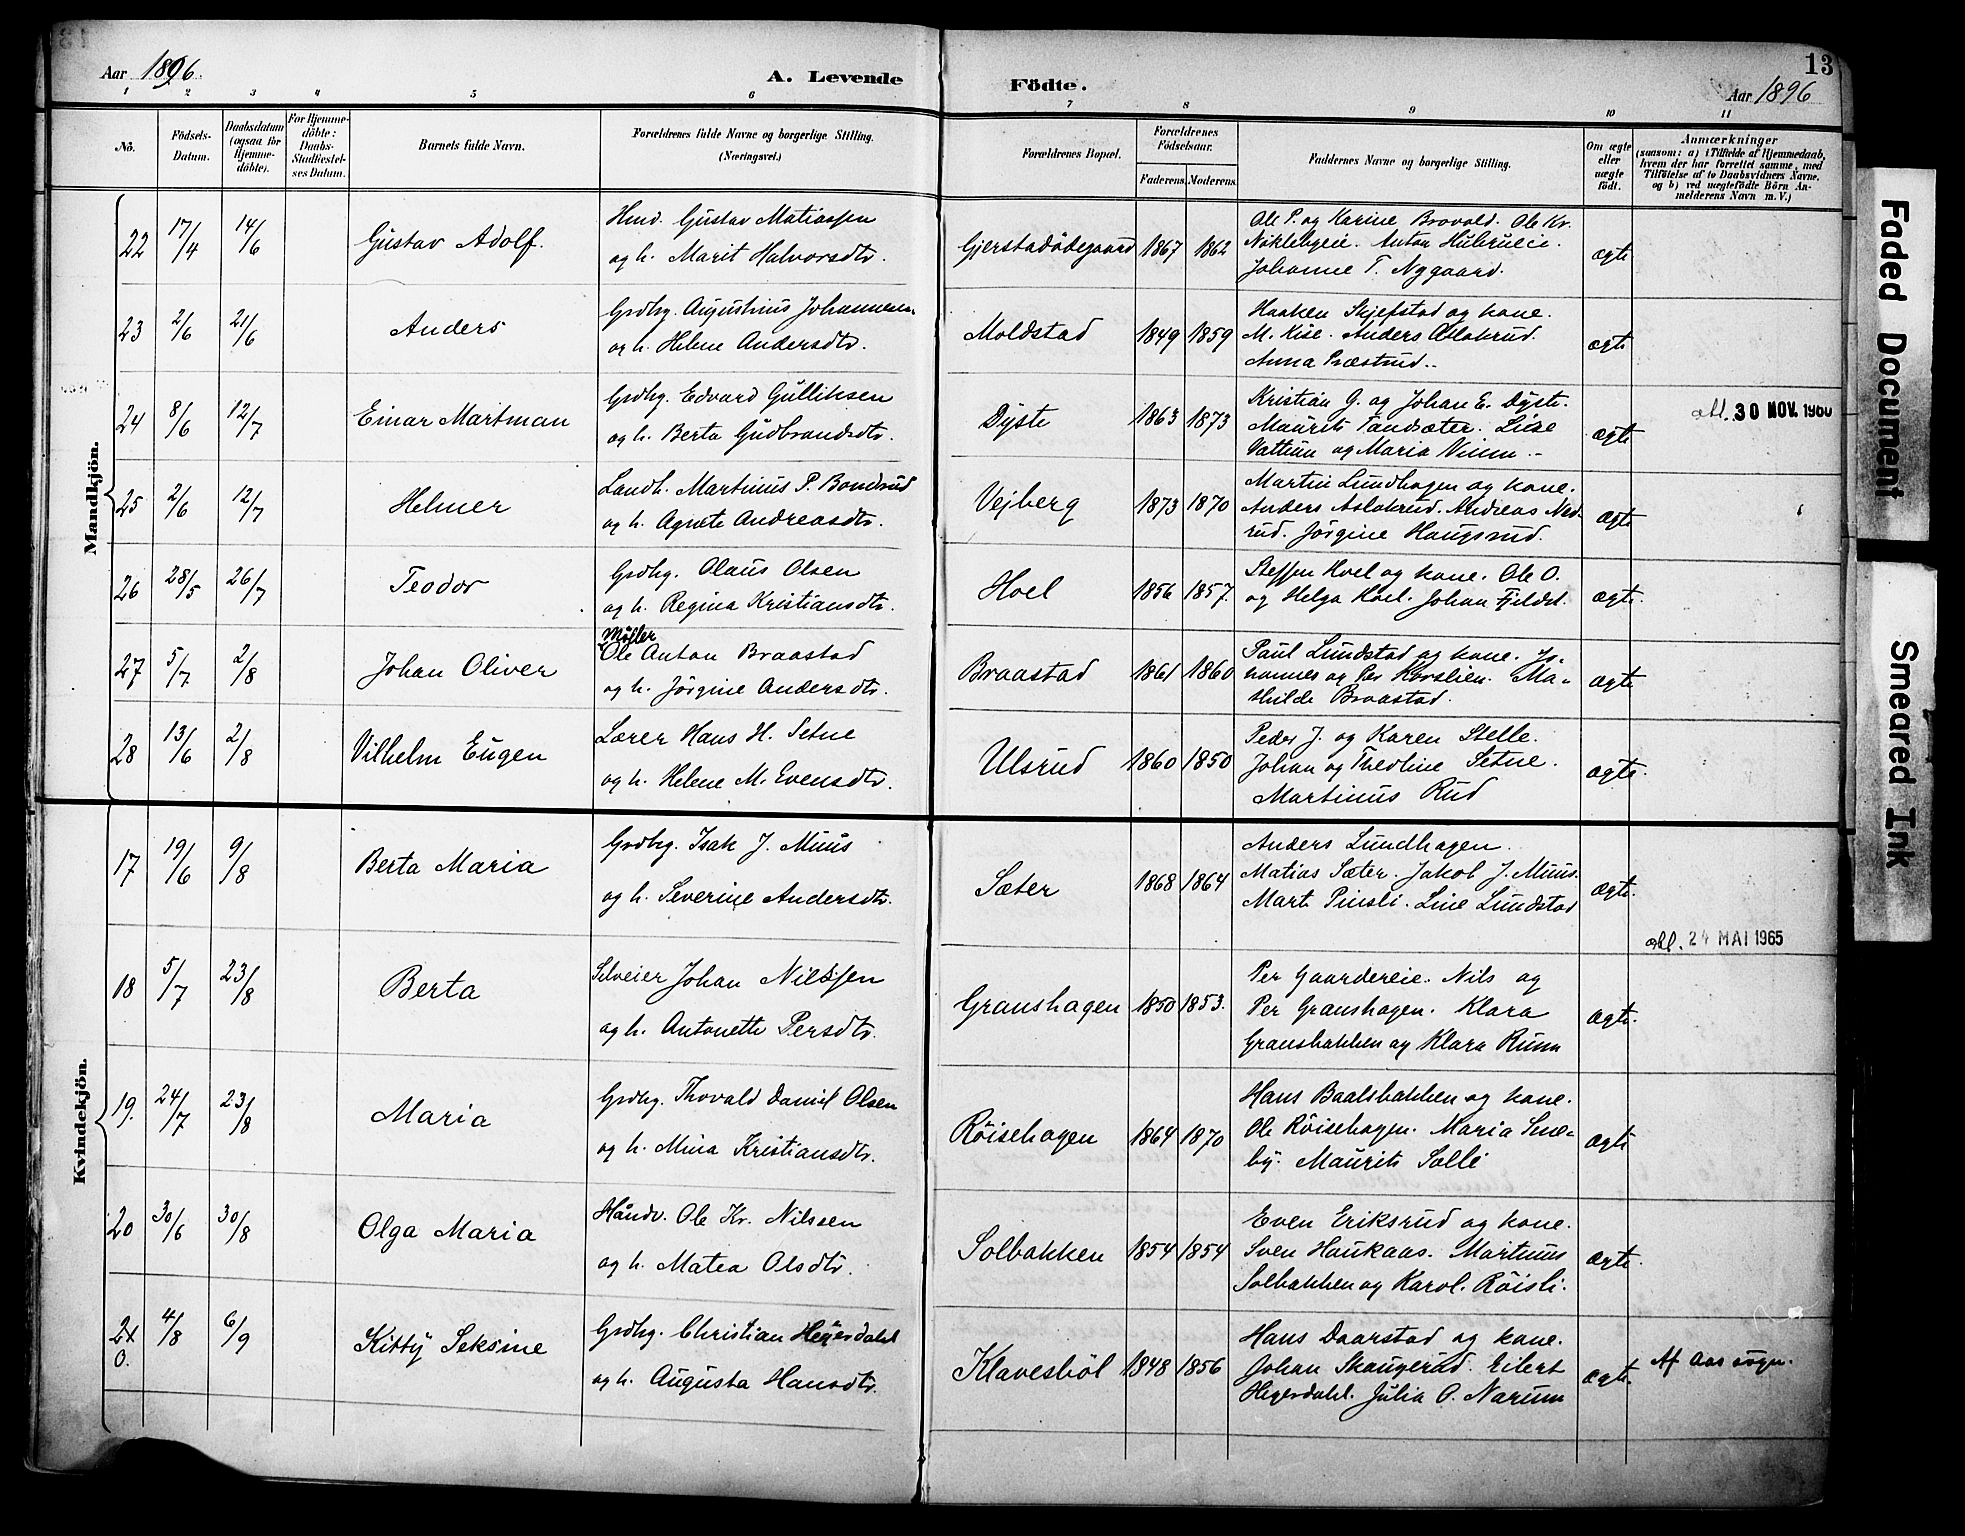 Aar 1896.
A. Levende
Födte.
13
Aar 1896
1 2 3 4 5 6 7 8 9 10 11
No.
Födsels-Datum.
Daabsdatum (ogsaa for Hjemme-döbte).
For Hjemme-döbte: Daabs-Stadfæstel-ses Datum.
Barnets fulde Navn.
Forældrenes fulde Navne og borgerlige Stilling.
(Næringsvei.)
Forældrenes Bopæl.
Forældrenes Födselsaar.
Faderens. Moderens.
Faddernes Navne og borgerlige Stilling.
Om ægte eller uægte födt.
Anmærkninger
(saasom: a) i Tilfælde af Hjemmedaab,
hvem der har forrettet samme, med
Tilföielse af to Daabsvidners Navne,
og b) ved uægtefödte Börn An-
melderens Navn m. V.)
Mandkjön.
22 17/4 14/6 Gustav Adolf.
Gustav Matiassen
og h. Marit Halvorsdtr.
Gjerstadödegaard 1867 1862
Ole P. og Karine Brovold. Ole Kr.
Anton
Johanne T. Nygaard.
ægte
23 2/6 21/6 Anders
Grdbg. Augustinus Johannesen
og h. Helene Andersdtr.
Moldstad 1849 1859
Haaken Skjefstad og kone.
M. Kise. Anders Aslakrud.
Anna Præstrud.
ægte
24 8/6 12/7 Einar Martman
Grdbg. Edvard Gulliksen
og h. Berta Gudbrandsdtr.
Dyste 1863 1873
Kristian G. og Johan E. Dyste.
Maurits Tandsæter. Lise
og Maria
ægte
abl. 30 NOV. 1960
25 2/6 12/7 Helmer
Landh. Martinus P. Bondrud
og h. Agnete Andreasdtr.
Vejberg 1873 1870
Martin Lundhagen og kone.
Anders Aslakrud. Andreas Ned-
rud. Jörgine Haugsrud.
ægte
26 28/5 26/7 Teodor
Grdbg. Olaus Olsen
og h. Regina Kristiansdtr.
Hoel 1856 1857.
Steffen Hoel og kone. Ole O.
og Helga Hoel. Johan Fjeldst.
ægte.
27 5/7 2/8 Johan Oliver
Möller
Ole Anton Braastad
og h. Jörgine Andersdtr.
Braastad 1861 1860
Paul Lundstad og kone. Jo-
hannes og Per Korslien. Ma-
thilde Braastad.
ægte
28 13/6 2/8 Vilhelm Eugen
Lærer Hans H. Setne
og h. Helene M. Evensdtr.
Ulsrud 1860 1850
Peder J. og Karen Stelle.
Johan og Thedline Setne.
Martinus Rud
ægte.
Kvindekjön.
17 19/6 9/8 Berta Maria
Grdbg. Isak J. Muus
og h. Severine Andersdtr.
Sæter 1868 1864
Anders Lundhagen.
Matias Sæter. Jakob J. Muus.
Mart. Pinsli. Line Lundstad
ægte.
abl. 24 MAI 1965
18 5/7 23/8 Berta
Selveier Johan Nilssen
og h. Antonette Persdtr.
Granshagen 1850 1853.
Per Gaardereie. Nils og
Per Granshagen. Klara
Gransbakken og Klara Ruun
ægte.
19. 24/7 23/8 Maria
Grdbg. Thovald Daniel Olsen
og h. Mina Kristiansdtr.
Röisehagen 1864 1870
Hans Baalsbakken og kone.
Ole Röisehagen. Maria Sme-
by. Maurits Solli
ægte
20 30/6 30/8 Olga Maria
Håndv. Ole Kr. Nilssen
og h. Matea Olsdtr.
Solbakken 1854 1854
Even Eriksrud og kone.
Sven Haukaas. Martinus
Solbakken og Karol. Röisli.
ægte.
21
0. 4/8 6/9 Kitty Seksine
Grdbg. Christian Heyerdahl
og h. Augusta Hansdtr.
Klavesböl 1848 1856
Hans Daarstad og kone.
Johan Skaugerud. Eilert
Heyerdahl. Julia O. Narum
ægte.
Af Aas sogn.
Faded Document
Smeared Ink